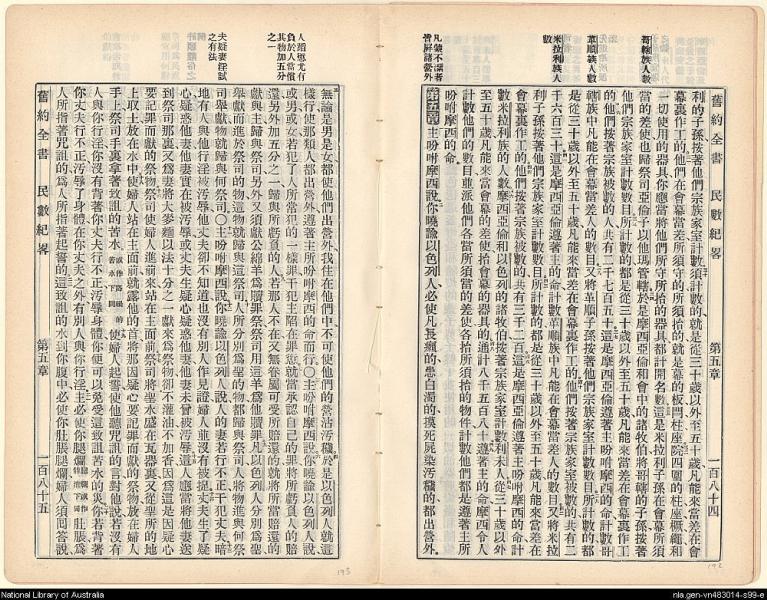 哥轄族人數
革順族人數
米拉利族人數
凡袋不潔者皆屏諸營外
舊約全書 民數紀畧 第五章 一百八十四
利的子孫按著他們宗族家室計數須計數的就是從三十歲以外至五十歲凡能來當差在會
幕裏作工的他們在會幕當差所須守的所須抬的就是幕的板閂柱座院四圍的柱座橛繩和
一切使用的器具你應當將他們所守所抬的器具都計開名數這是米拉利子孫在會幕所須
當的差使也歸祭司亞倫子以他瑪管轄於是摩西亞倫和會中的諸牧伯將哥轄的子孫按著
他們宗族家室計數數目所計數的都是從三十歲以外至五十歲凡能來當差在會幕裏作工
的他們按著宗族被數的人共有二千七百五十這是摩西亞倫遵著主吩咐摩西的命計數哥
轄族中凡能在會幕當差人的數目又將革順子孫按著他們宗族家室計數數目所計數的都
是從三十歲以外至五十歲凡能來當差在會幕裏作工的他們按著宗族家室被數的共有二
千六百三十這是摩西亞倫遵著主的命計數革順族中凡能在會幕當差人的數目又將米拉
利子孫按著他們宗族家室計數數目所計數的都是從三十歲以外至五十歲凡能來當差在
會幕裏作工的他們按著宗族被數的共有三千二百這是摩西亞倫遵著主吩咐摩西的命計
數米拉利族的人數摩西亞倫和以色列的諸牧伯按著宗族家室計數利未人從三十歲以外
至五十歲凡能來當會幕的差使抬會幕的器具的通計八千五百八十遵著主的命摩西令人
計數他們的數目並派他們各當所須當的差使各抬所須抬的物件計數他們都是遵著主所
吩咐摩西的命
第五章 主吩咐摩西說你曉諭以色列人必使凡長癩的患白濁的摸死屍染汚穢的都出營外
人蹈愆尤有負於人當償其物加五分之一
夫疑妻有試之有法
無論是男是女都使他們出營外我住在他們中不可使他們的營沾穢於是以色列人就這
樣行使那類人都出營外遵著主所吩咐摩西的命而行〇主吩咐摩西說你曉諭以色列人說
或男或女若犯了人所常犯的一樣罪干犯主陷在罪愆就當承認自己的罪將所虧負人的賠
還另外加五分之一歸與所虧負的人若那人不在又無眷屬可受所賠還的就將所當賠還的
獻與主歸與祭司另外又須獻公綿羊為贖罪祭祭司用這羊為他贖罪凡以色列人分別為聖
舉獻而進於祭司的物這物就歸與這祭司人所分別為聖的物都歸與祭司人將物進與何祭
司舉獻物就歸與何祭司〇主吩咐摩西說你曉諭以色列人說人的妻若行不正干犯丈夫暗
地有人與他行淫被汚辱他丈夫卻不知道也沒有別人作見證婦人並沒有被捉丈夫生了疑
心疑惑他妻他妻實在被汚辱或丈夫生疑心疑惑他妻他妻未曾被汚辱這人應當將他妻送
到祭司那裏又為妻將大麥麵以法十分之一獻來為祭物卻不灌油不加香因為這是因疑心
要記罪而獻的祭物祭司使婦人進前來站在主面前祭司將聖水盛在瓦器裏又從聖所的地
上取土放在水中使婦人站在主面前就露他的首將那因疑心要記罪而獻的祭物放在婦人
手上祭司手裏拿著致詛的苦水使婦人起誓使他聽咒詛的言對他說若沒有
人與你行淫你沒有背著你丈夫行不正汚辱身體你便可以免受這致詛苦水的災你若背著
你丈夫行不正汚辱了身體在你丈夫之外有別人與你行淫主必使你腿爛肚脹爲
人所指著咒詛的爲人所指著起誓的這致詛的水到你腹中必使你肚脹腿爛婦人須囘答說
舊約全書 民數紀畧 第五章 一百八十五
195
192
National Library of Australia
nla.gen-vn483014-s99-e